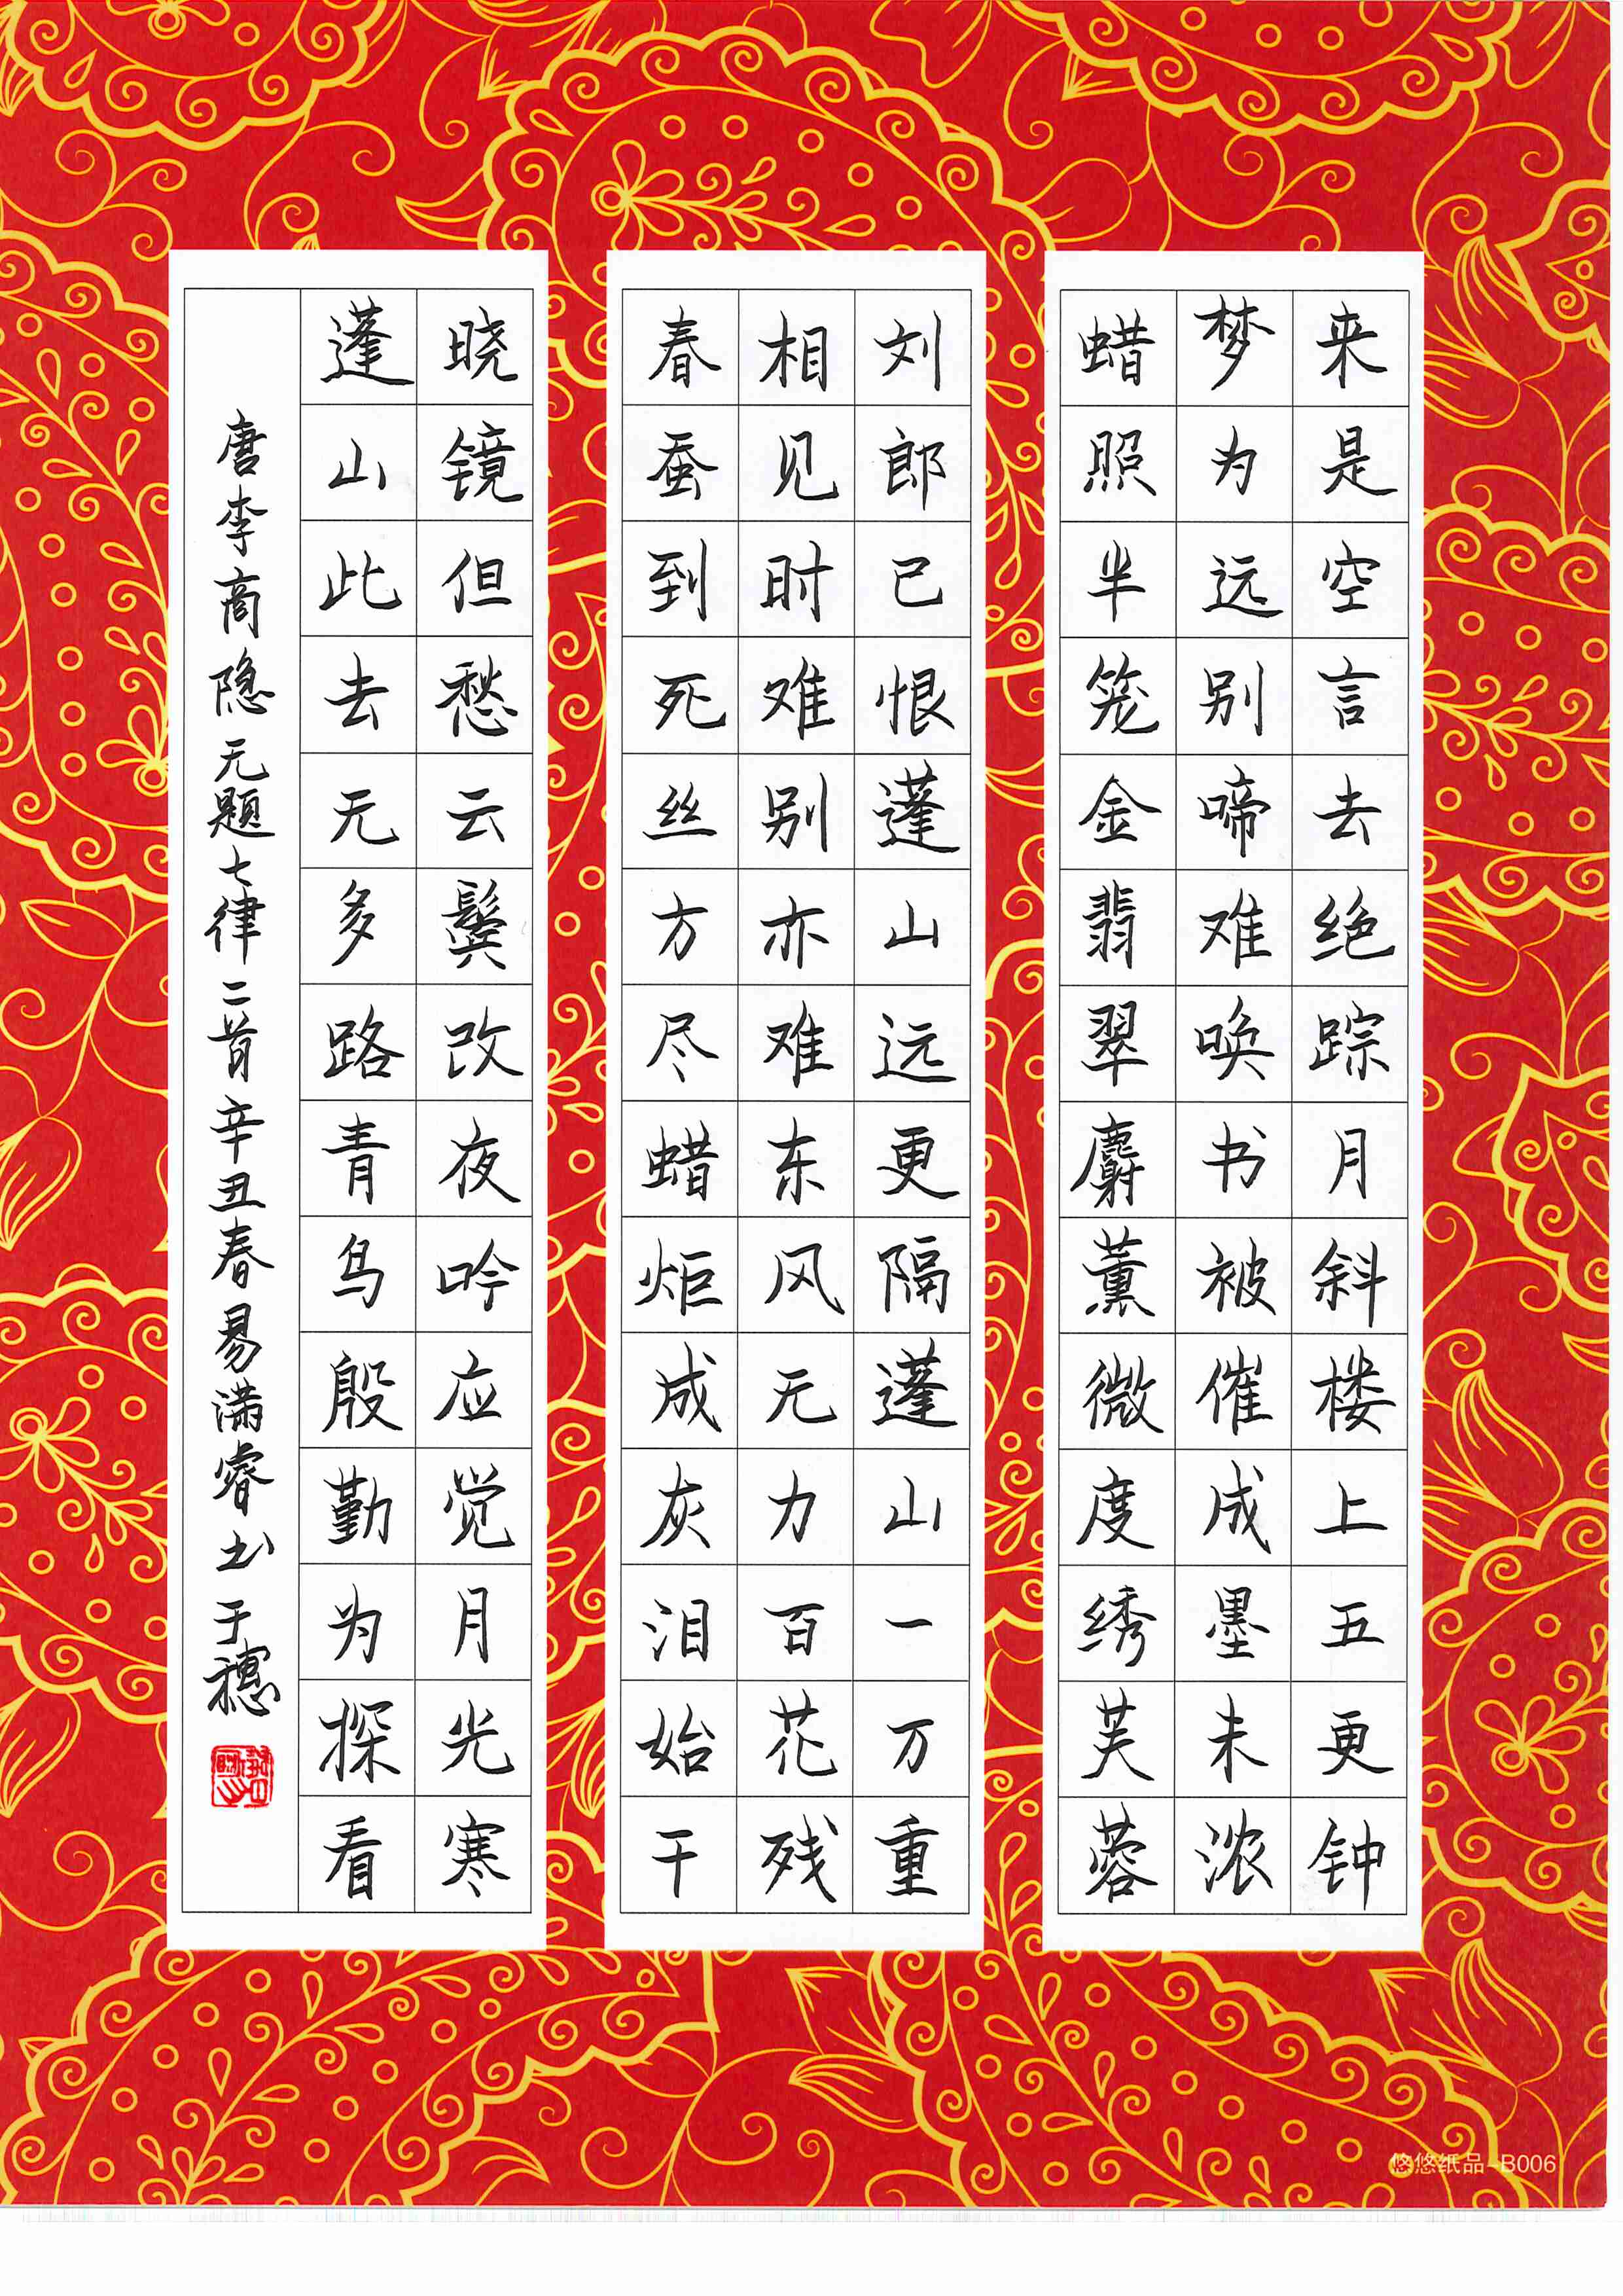 来是空言去绝踪月斜楼上五更钟
梦为远别啼难唤书被催成墨未浓
蜡照半笼金翡翠麝薰微度绣芙蓉
刘郎已恨蓬山远更隔蓬山一万重
相见时难别亦难东风无力百花残
春蚕到死丝方尽蜡炬成灰泪始干
晓镜但愁云鬓改夜吟应觉月光寒
蓬山此去无多路青鸟殷勤为探看
唐李商隐无题七律二首辛丑春易满睿书于穗
悠悠纸品-B006